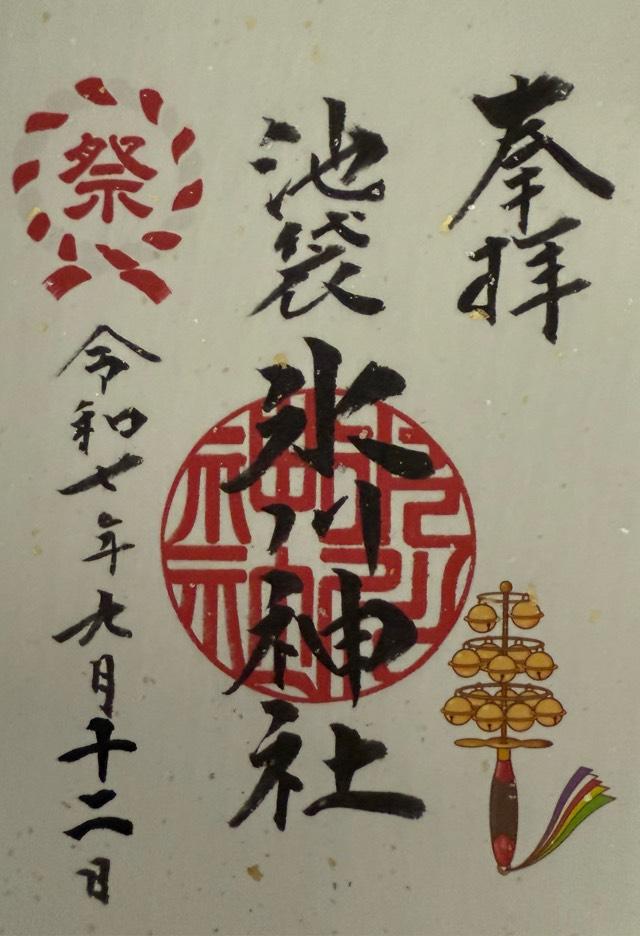 奉拝
池袋
氷川神社
祭
令和七年九月十二日